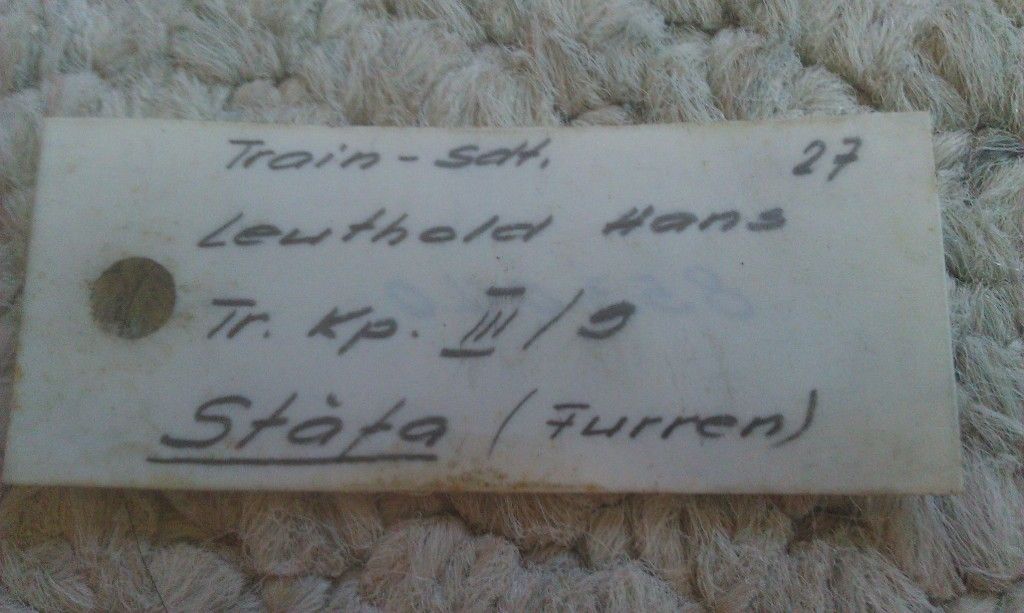 Train - Sdt. 27
Leuthold Hans
Tr. Kp. III / 9
Stäfa (Furren)